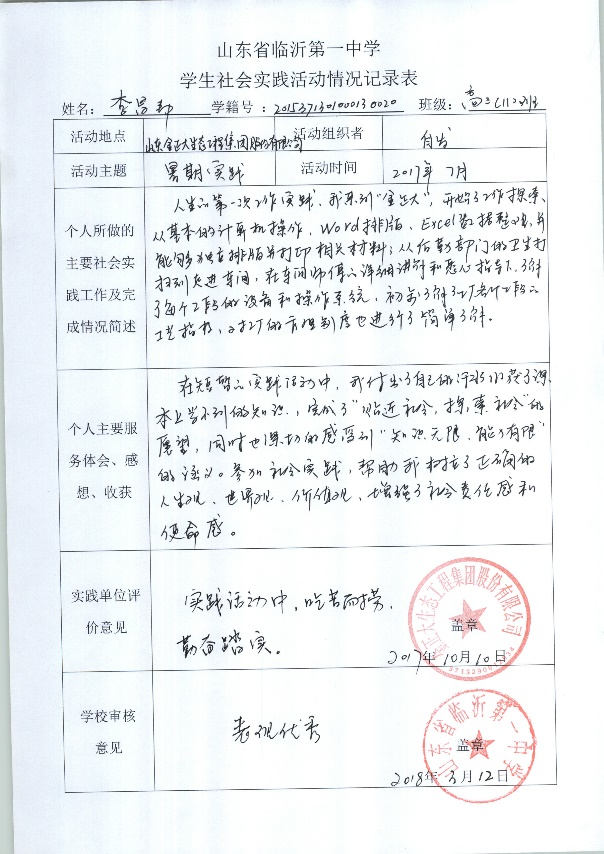 山东省临沂第一中学
学生社会实践活动情况记录表
姓名： 李昌邦 学籍号：2015371301000130020 班级：高三(11)班
活动地点 山东金正大生态工程集团股份有限公司 活动组织者 自发
活动主题 暑期实践 活动时间 2017年7月
个人所做的主要社会实践工作及完成情况简述
人生的第一次工作实践，我来到“金正大”，开始了工作探索，
从基本的计算机操作，Word排版，Excel数据整理，并
能够独立排版并打印相关材料；从后勤部门的卫生打
扫到走进车间，在车间师傅的详细讲解和悉心指导下，了解
了每个工段的设备和操作系统，初步了解了工厂各个工段的
工艺指标，对工厂的管理制度也进行了简单了解。
个人主要服务体会、感想、收获
在短暂的实践活动中，我付出了自己的汗水收获了课
本上学不到的知识，完成了“贴近社会，探索社会”的
愿望，同时也深切的感受到“知识无限，能力有限”
的涵义。参加社会实践，帮助我树立了正确的
人生观、世界观、价值观，增强了社会责任感和
使命感。
实践单位评价意见
实践活动中，吃苦耐劳，
勤奋踏实。
金正大生态工程集团股份有限公司
盖章
2017年10月10日
学校审核意见
表现优秀
山东省临沂第一中学
盖章
2018年3月12日